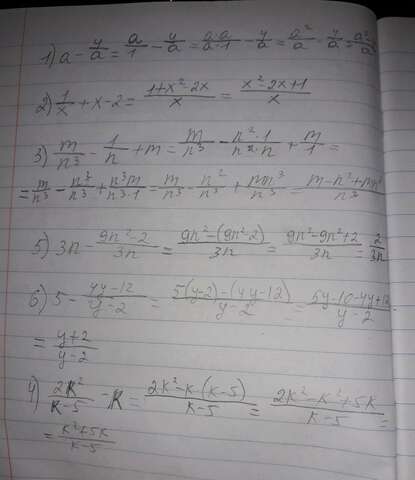 1) a - 4/a = a/1 - 4/a = a·a/a·1 - 4/a = a²/a - 4/a = a²-4/a
2) 1/x + x - 2 = 1+x²-2x/x = x²-2x+1/x
3) m/n³ - 1/n + m = m/n³ - n²·1/n²·n + m/1 =
= m/n³ - n²/n³ + n³m/n³·1 = m/n³ - n²/n³ + mn³/n³ = m-n²+mn³/n³
5) 3n - 9n²-2/3n = 9n²-(9n²-2)/3n = 9n²-9n²+2/3n = 2/3n
6) 5 - 4y-12/y-2 = 5(y-2)-(4y-12)/y-2 = 5y-10-4y+12/y-2
= y+2/y-2
4) 2k²/k-5 - k = 2k²-k(k-5)/k-5 = 2k²-k²+5k/k-5 =
= k²+5k/k-5